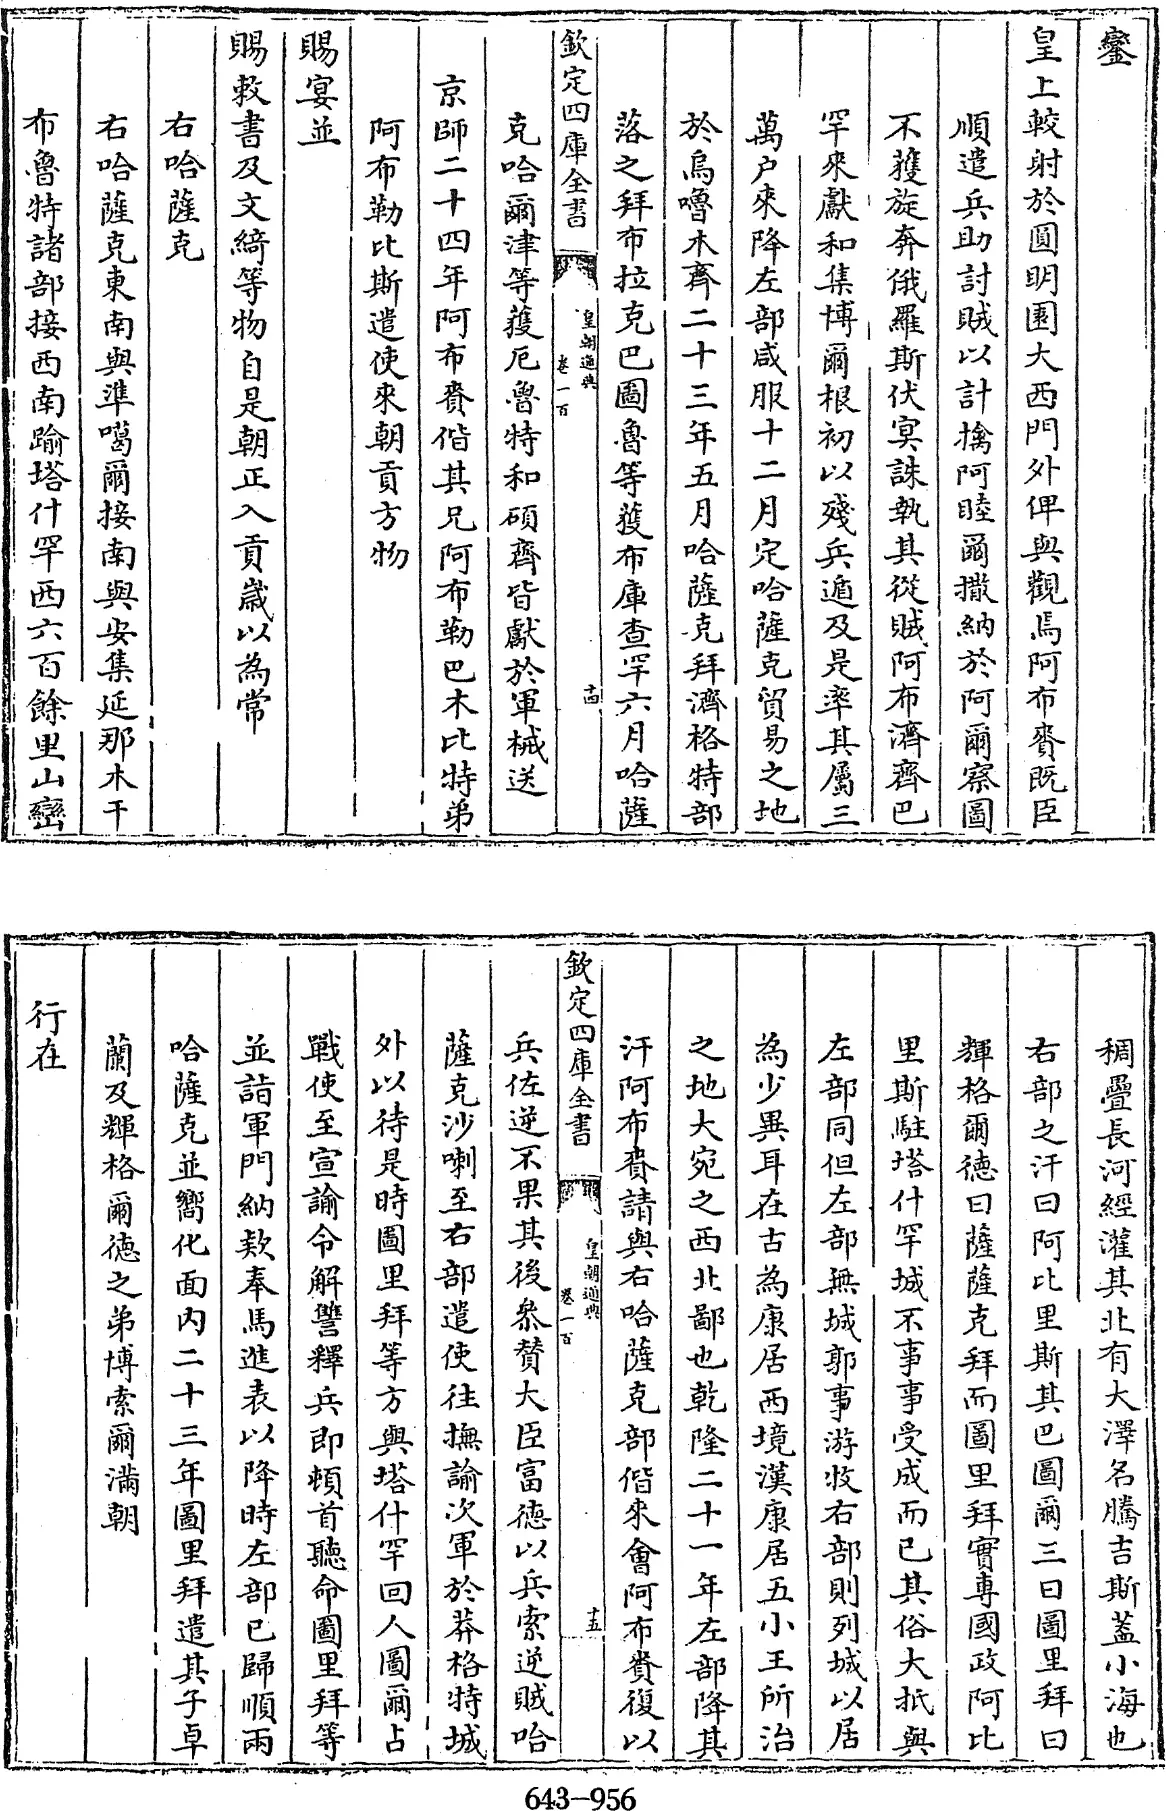 鑾
皇上較射於圓明園大西門外俾與觀焉阿布賚既臣
順遣兵助討賊以計擒阿睦爾撒納於阿爾察圖
不獲旋奔俄羅斯伏冥誅執其從賊阿布濟齊巴
罕來獻和集博爾根初以殘兵遁及是率其屬三
萬户來降左部咸服十二月定哈薩克貿易之地
於烏嚕木齊二十三年五月哈薩克拜濟格特部
落之拜布拉克巴圖魯等獲布庫查罕六月哈薩
欽定四庫全書
皇朝通典
卷一百
十四
克哈爾津等獲厄魯特和碩齊皆獻於軍械送
京師二十四年阿布賚偕其兄阿布勒巴木比特弟
阿布勒比斯遣使來朝貢方物
賜宴並
賜敕書及文綺等物自是朝正入貢歲以為常
右哈薩克
右哈薩克東南與準噶爾接南與安集延那木干
布魯特諸部接西南踰塔什罕西六百餘里山巒
稠疊長河經灌其北有大澤名騰吉斯蓋小海也
右部之汗曰阿比里斯其巴圖爾三曰圖里拜曰
輝格爾德曰薩薩克拜而圖里拜實專國政阿比
里斯駐塔什罕城不事事受成而已其俗大抵與
左部同但左部無城郭事游牧右部則列城以居
為少異耳在古為康居西境漢康居五小王所治
之地大宛之西北鄙也乾隆二十一年左部降其
汗阿布賚請與右哈薩克部偕來會阿布賚復以
欽定四庫全書
皇朝通典
卷一百
十五
兵佐逆不果其後叅贊大臣富德以兵索逆賊哈
薩克沙喇至右部遣使往撫諭次軍於莽格特城
外以待是時圖里拜等方與塔什罕回人圖爾占
戰使至宣諭令解讐釋兵即頓首聽命圖里拜等
並詣軍門納款奉馬進表以降時左部已歸順兩
哈薩克並嚮化面内二十三年圖里拜遣其子卓
蘭及輝格爾德之弟博索爾滿朝
行在
643-956